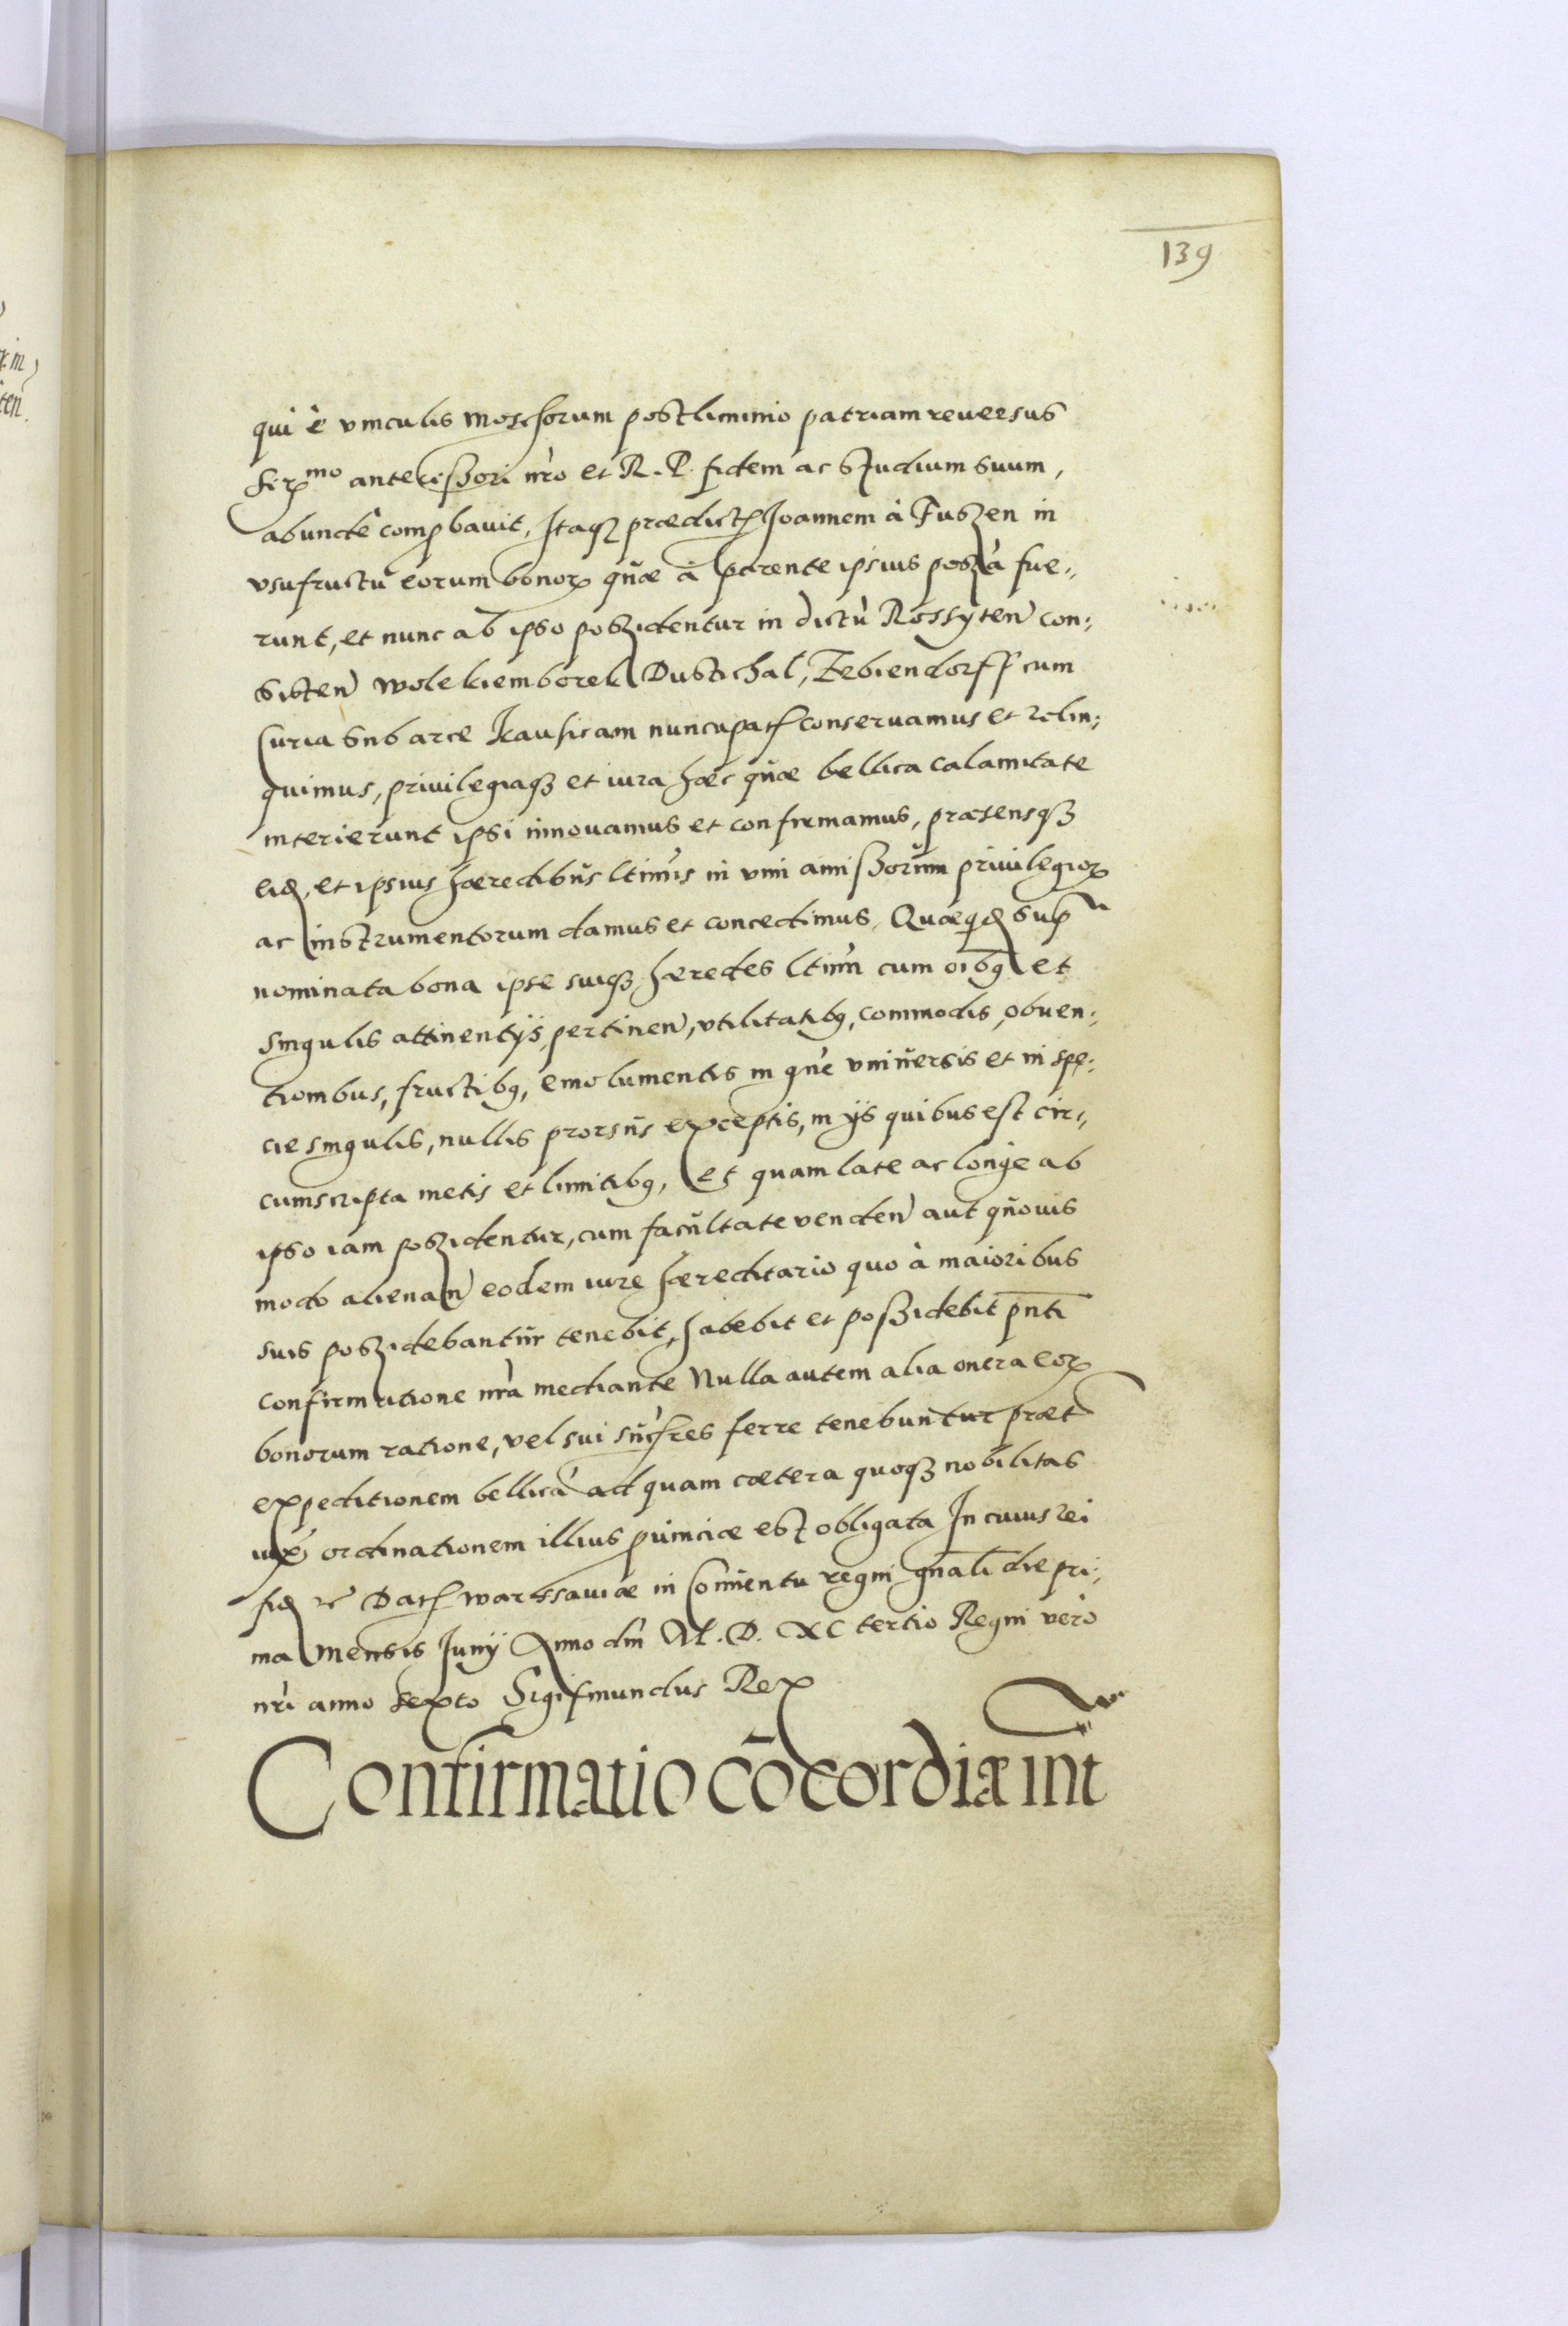 139
qui è vinculis Moschorum postliminio patriam reuersus
Serᵐᵒ antecißori nr̃o et R. P. fidem ac studium suum,
abundè comꝓbauit, Itaqꝫ prædictꝭ Joannem à Fuszen in
vsufructu eorum bonoꝝ quæ à parente ipsius poszà fue„
runt, et nunc ab ipso poszidentur in dictù Rossyten̄ con„
sisten̄ Wolekiemborek Dustichal, Zebiendorff cum
Curia sub arce Ikauficam nuncupatꝭ conseruamus et relin„
quimus, priuilegiaqꝫ et iura hæc quæ bellica calamitate
interierunt ipsi innouamus et confirmamus, præsensqꝫ
eid, et ipsius hæredibus ltimis in vim amißorum priuilegioꝝ
ac instrumentorum damus et concedimus, Quæqd sup
nominata bona ipse suiqꝫ hæredes ltimi cum oibꝯ et
singulis attinentijs, pertinen̄, vtilitatibꝯ, commodis, obuen„
tionibus, fructibꝯ, emolumentis in gn̄e vniuersis et in spe„
cie singulis, nullis prorsus exceptis, in ijs quibus est cir„
cumscripta metis et limitibꝯ, et quam late ac longe ab
ipso iam poszidentur, cum facultate venden̄ aut quouis
modo alienan̄ eodem iure hæreditario quo à maioribus
suis poszidebantur tenebit, habebit et poßidebit pn̄ti
confirmatione nr̃a mediante Nulla autem alia onera eoꝝ
bonorum ratione, vel sui sucḟres ferre tenebuntur præt
expeditionem bellicā ad quam cætera quoqꝫ nobilitas
iuxᵃ ordinationem illius ꝓuinciæ est obligata In cuius rei
fid ꝛc̃ Datꝭ Warssauiæ in Conuentu regni gn̄ali die pri„
ma mensis Junij Anno dn̄i M. D. XC tertio Regni vero
nr̃i anno Sexto Sigismundus Rex
Confirmatio cōcordiæ int